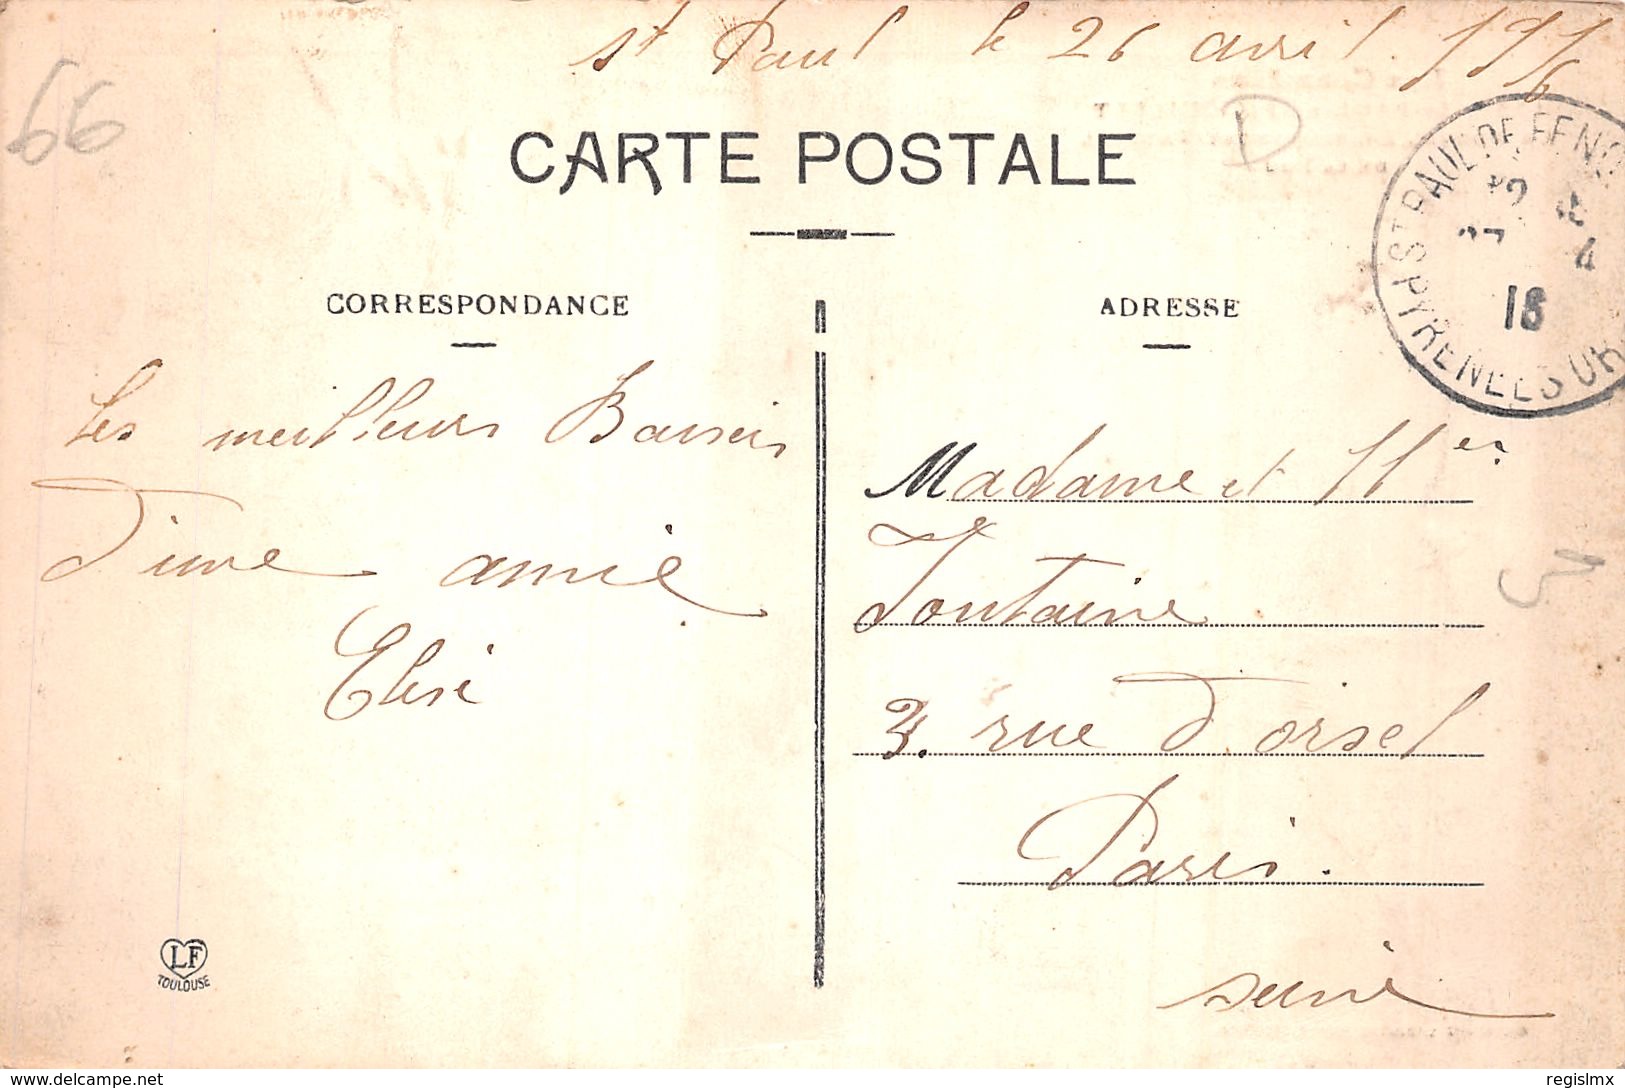 St Paul le 26 avril 1916
66
D
CARTE POSTALE
ST PAUL DE FENO
PYRENEES OR
27 4
16
CORRESPONDANCE
ADRESSE
Les meilleurs Baisers
D'une amie
Elise
Madame et Mes
Fontaine
3. rue D'orsel
Paris.
seine
LF
TOULOUSE
www.delcampe.net
regislmx